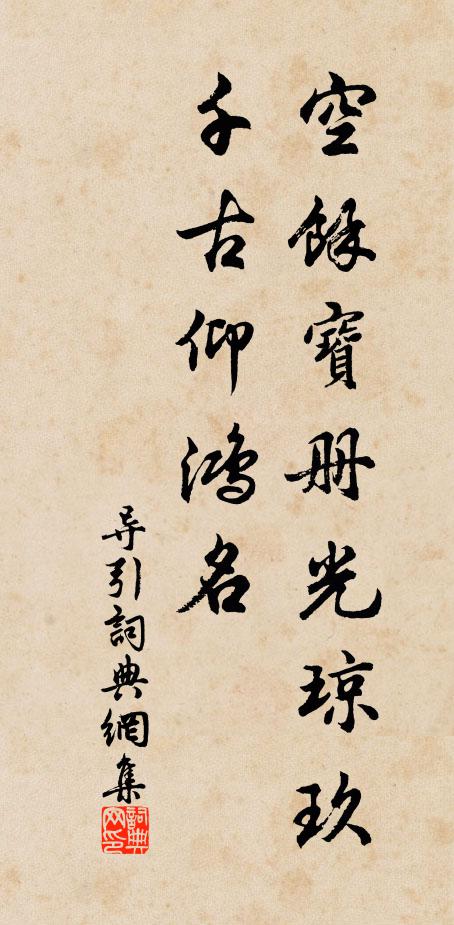 空餘寶册光琼玖
千古仰鴻名
导引詞典網集
詞典网印